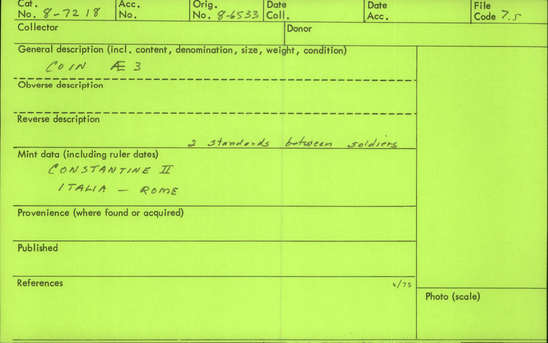 Cat. No. 8-7218 Acc. No. Orig. No. 8-6533 Date Coll. Date Acc. File Code 7.5
Collector Donor
General description (incl. content, denomination, size, weight, condition)
COIN Æ 3
Obverse description
Reverse description
2 standards between soldiers
Mint data (including ruler dates)
CONSTANTINE II
ITALIA — ROME
Provenience (where found or acquired)
Published
References
Photo (scale)